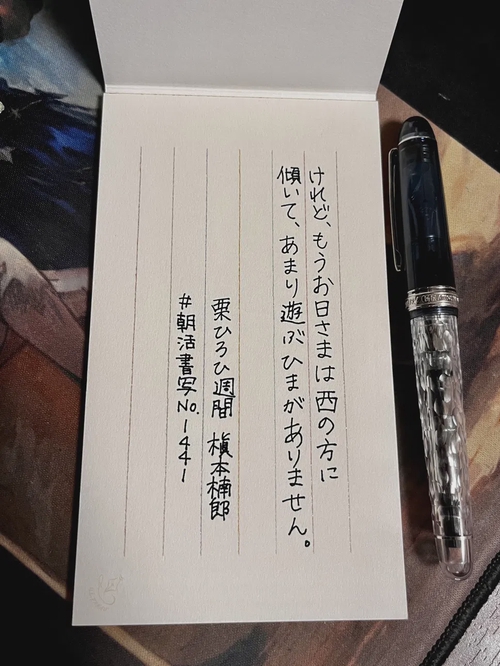 けれど、もうお日さまは西の方に
傾いて、あまり遊ぶひまがありません。
栗ひろひ週間 槇本楠郎
#朝活書写No.1441